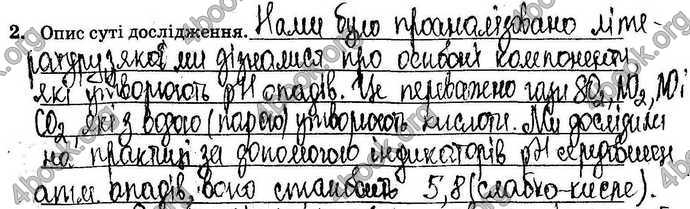 2. Опис суті дослідження. Нами було проаналізовано літе-
ратуру з якої ми дізналися про основні компоненти
які утворюють pH опадів. Це переважно гази SO2, NO2, NO і
CO2, які з водою (парою) утворюють кислоти. Ми дослідили
на практиці за допомогою індикаторів pH середовища
атм. опадів, воно становить 5,8 (слабко-кисле).